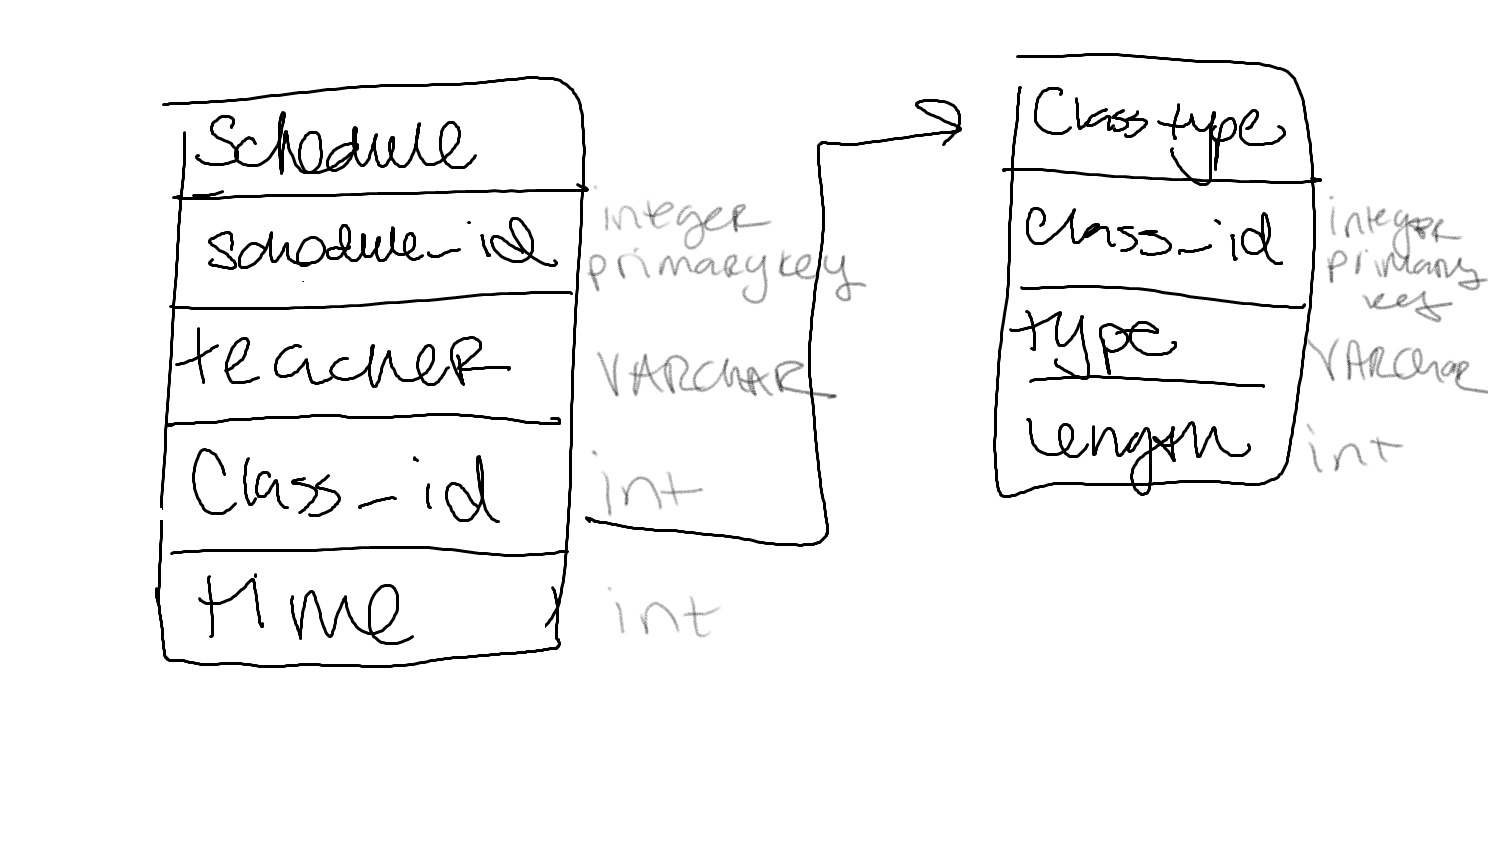 Schedule
schedule_id integer
primary key
teacher VARCHAR
Class_id int
time int
Class type
class_id integer
primary
key
type VARChar
length int